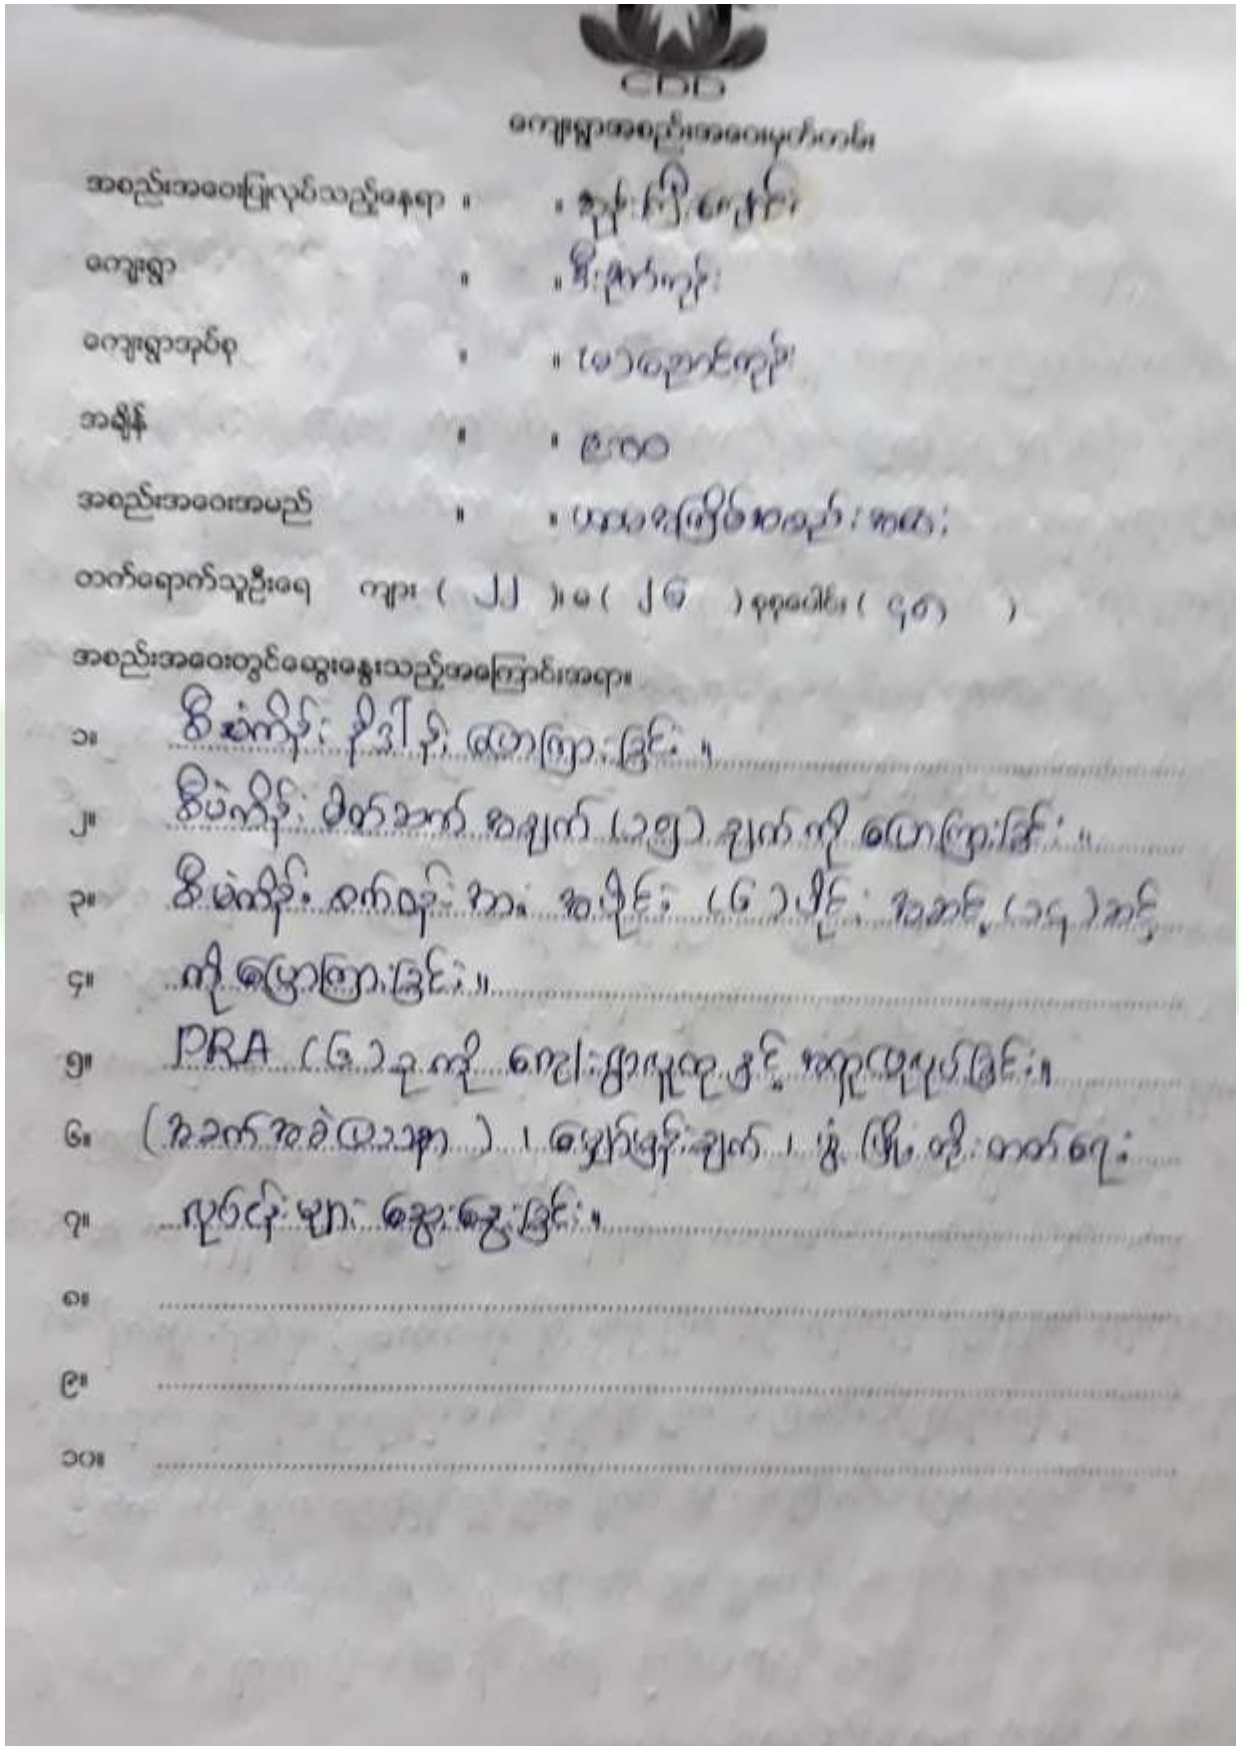 CDD
ကျေးရွာအစည်းအဝေးမှတ်တမ်း
အစည်းအဝေးပြုလုပ်သည့်နေရာ ။ ။ ဘုန်းကြီးကျောင်း
ကျေးရွာ ။ ။ စီးပွတ်ကုန်း
ကျေးရွာအုပ်စု ။ ။ (မ)ညောင်ကုန်း
အချိန် ။ ။ ၉:၀၀
အစည်းအဝေးအမည် ။ ။ ပထမအကြိမ်အစည်းအဝေး
တက်ရောက်သူဦးရေ ကျား ( ၂၂ )၊ မ ( ၂၆ ) စုစုပေါင်း ( ၄၈ )
အစည်းအဝေးတွင်ဆွေးနွေးသည့်အကြောင်းအရာ။
၁။ စီမံကိန်း နိဒါန်း ပြောကြားခြင်း ။
၂။ စီမံကိန်း မိတ်ဆက် အချက် (၁၅) ချက် ကို ပြောကြားခြင်း ။
၃။ စီမံကိန်း စက်ဝန်း အား အပိုင်း (၆) ပိုင်း အဆင့် (၁၄) ဆင့်
၄။ ကို ပြောကြားခြင်း ။
၅။ PRA (၆) ခု ကို ကျေးရွာလူထု နှင့် အတူပြုလုပ်ခြင်း။
၆။ (အခက်အခဲပြဿနာ) ၊ မျှော်မှန်းချက် ၊ ဖွံ့ဖြိုးတိုးတက်ရေး
၇။ လုပ်ငန်းများ ဆွေးနွေးခြင်း ။
၈။
၉။
၁၀။